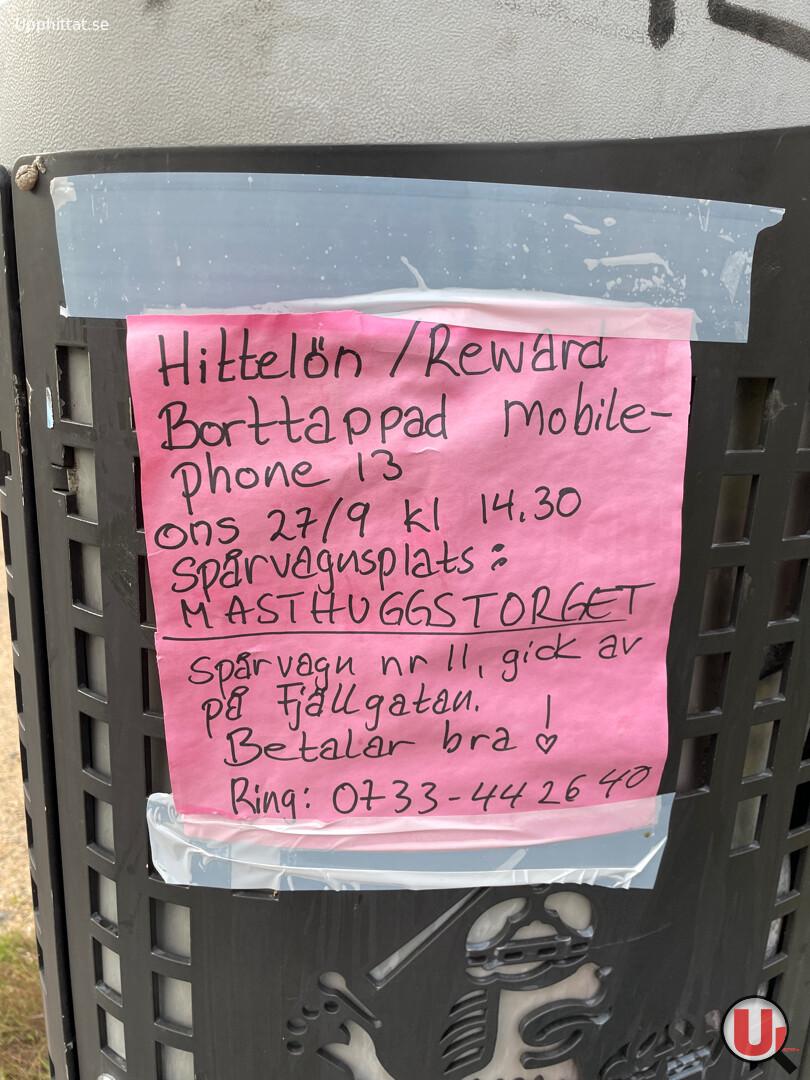 Upphittat.se
Hittelön / Reward
Borttappad mobile-
phone 13
ons 27/9 kl 14.30
Spårvagnsplats:
MASTHUGGSTORGET
Spårvagn nr 11, gick av
på Fjällgatan.
Betalar bra !
Ring: 0733-44 26 40
U